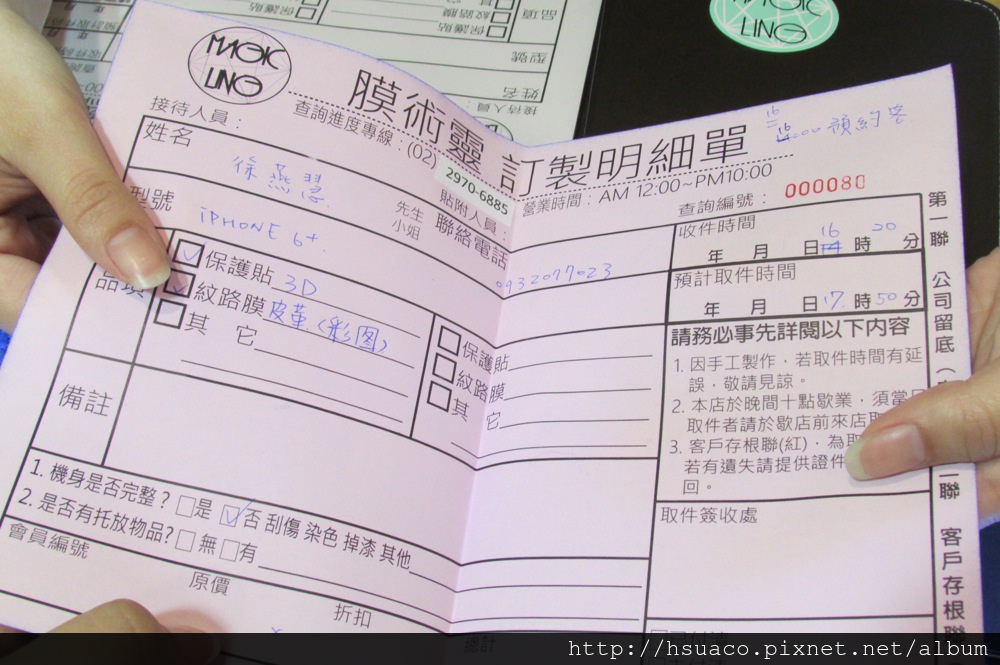 MAGIC
LING
MAGIC
LING
膜術靈 訂製明細單
查詢進度專線：(02)
2970-6885
營業時間：AM 12:00~PM10:00
16
預約客
接待人員：
貼附人員：
查詢編號：
000080
姓名
徐燕慧
先生
小姐
聯絡電話
0932077023
型號
iPHONE 6+
收件時間
年 月 日 16 時 20 分
預計取件時間
年 月 日 17 時 50 分
品項
保護貼 3D
紋路膜 皮革(彩图)
其 它
保護貼
紋路膜
其 它
請務必事先詳閱以下內容
1. 因手工製作，若取件時間有延
誤，敬請見諒。
2. 本店於晚間十點歇業，須當日
取件者請於歇店前來店取
3. 客戶存根聯(紅)，為取
若有遺失請提供證件
回。
備註
1. 機身是否完整？ 是 否 刮傷 染色 掉漆 其他
2. 是否有托放物品? 無 有
取件簽收處
會員編號
原價
折扣
總計
第一聯 公司留底
二聯 客戶存根聯
品項
保護貼
紋路膜
型號
姓名
接待人員：
http://hsuaco.pixnet.net/album